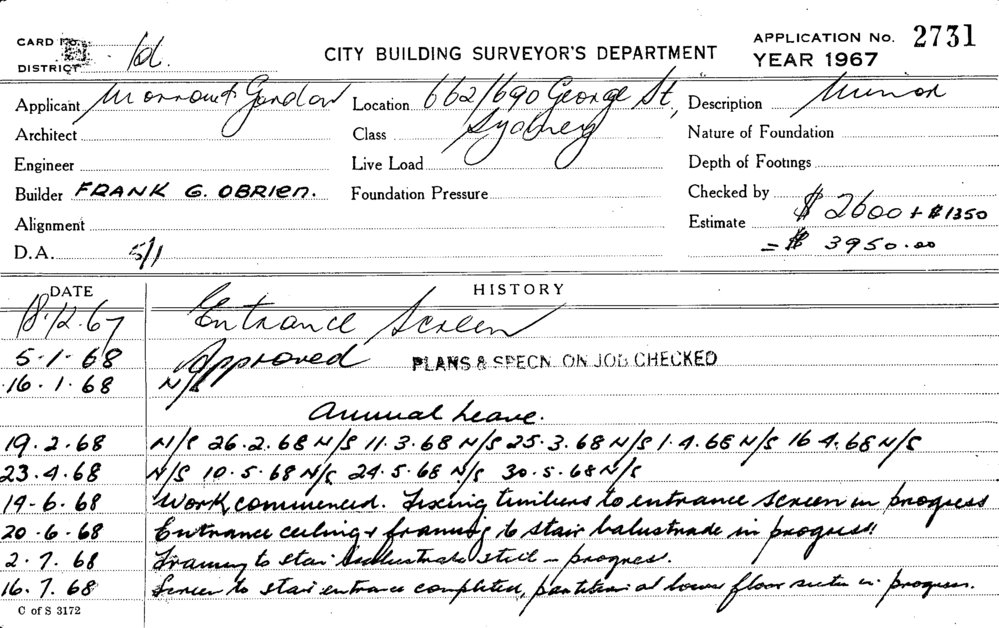 CARD No. 1d. CITY BUILDING SURVEYOR'S DEPARTMENT APPLICATION No. 2731
DISTRICT YEAR 1967
Applicant Morrow & Gordon Location 662/690 George St., Description Minor
Architect Class Sydney Nature of Foundation
Engineer Live Load Depth of Footings
Builder FRANK G. OBRIEN. Foundation Pressure Checked by
Alignment Estimate $ 2600 + $1350
D.A. 5/1 = $ 3950.00
DATE HISTORY
18.12.67 Entrance Screen
5.1.68 Approved PLANS & SPECN. ON JOB CHECKED
16.1.68 N/S
Annual Leave.
19.2.68 N/S 26.2.68 N/S 11.3.68 N/S 25.3.68 N/S 1.4.68 N/S 16.4.68 N/S
23.4.68 N/S 10.5.68 N/S 24.5.68 N/S 30.5.68 N/S
14-6.68 Work commenced. Fixing timbers to entrance screen in progress
20.6.68 Entrance ceiling & framing to stair balustrade in progress
2.7.68 Framing to stair balustrade still in progress.
16.7.68 Screen to stair entrance completed, partition at lower floor section in progress.
C of S 3172